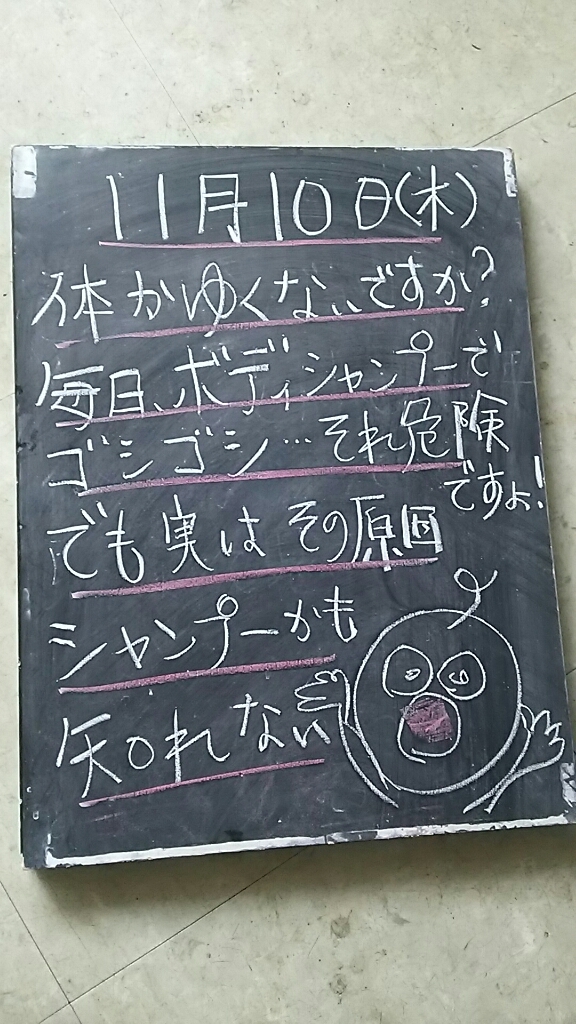 11月10日(木)
体かゆくないですか?
毎日、ボディシャンプーで
ゴシゴシ…それ危険
ですよ!
でも実はその原因
シャンプーかも
知れない